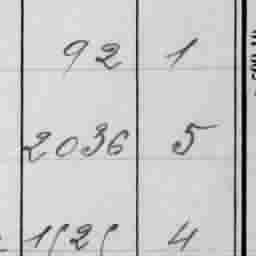 92 1
2036 5
4